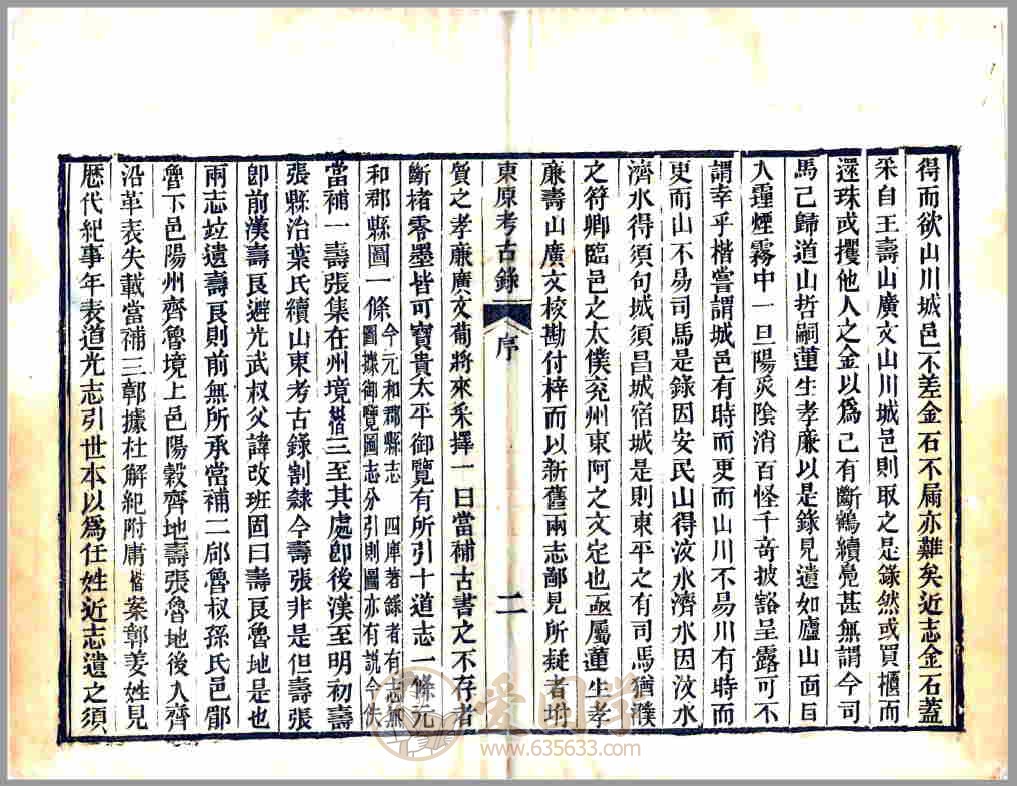 得而欲山川城邑不差金石不屚亦難矣近志金石蓋
采自王壽山廣文山川城邑則取之是錄然或買櫃而
還珠或攫他人之金以爲己有斷鶴續鳧甚無謂今司
馬己歸道山哲嗣蓮生孝廉以是錄見遺如廬山面目
入霾煙霧中一旦陽炅陰消百怪千奇披豁呈露可不
謂幸乎楷嘗謂城邑有時而更而山川不易川有時而
更而山不易司馬是錄因安民山得汶水濟水因汶水
濟水得須句城須昌城宿城是則東平之有司馬猶濮
之符卿臨邑之太僕兗州東阿之文定也亟屬蓮生孝
廉壽山廣文校勘付梓而以新舊兩志鄙見所疑者坿
質之孝廉廣文葡將來采擇一曰當補古書之不存者
斷楮零墨皆可寶貴太平御覽有所引十道志一條元
和郡縣圖一條今元和郡縣志四庫著錄者有志無圖據御覽圖志分引則圖亦有說今佚
當補一壽張集在州境楷三至其處卽後漢至明初壽
張縣治葉氏續山東考古錄割隸今壽張非是但壽張
卽前漢壽良避光武叔父諱改班固曰壽良魯地是也
兩志竝遺壽良則前無所承當補二郈魯叔孫氏邑鄆
魯下邑陽州齊魯境上邑陽穀齊地壽張魯地後入齊
沿革表失載當補三鄣據杜解紀附庸楷案鄣姜姓見
歷代紀事年表道光志引世本以爲任姓近志遺之須
東原考古錄
序
二
爱国学
www.635633.com